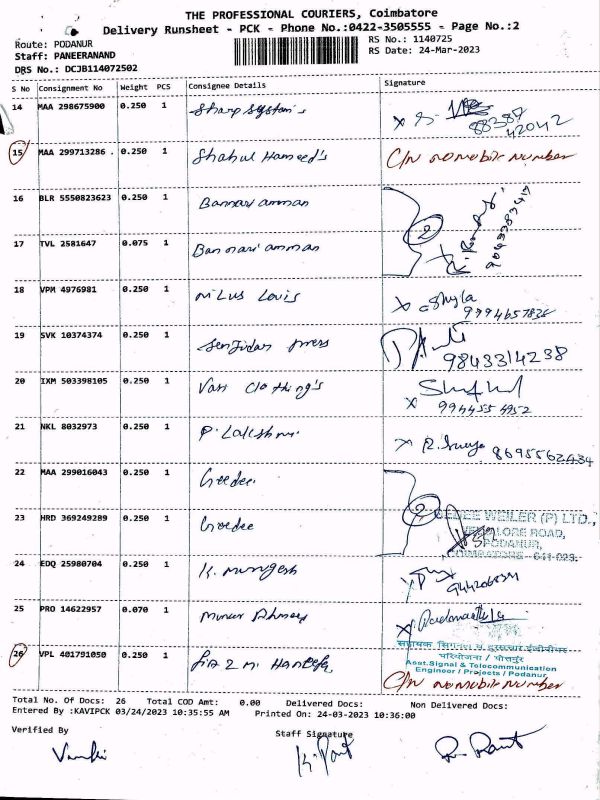 THE PROFESSIONAL COURIERS, Coimbatore
Delivery Runsheet - PCK - Phone No.:0422-3505555 - Page No.:2
Route: PODANUR
Staff: PANEERANAND
DRS No.: DCJB114072502
RS No.: 1140725
RS Date: 24-Mar-2023
S No Consignment No Weight PCS Consignee Details Signature
14 MAA 298675900 0.250 1 Sharp systems
88387
42042
15 MAA 299713286 . 0.250 1 Shahul Hameed's C/N no mobile number
16 BLR 5550823623 0.250 1 Bannari amman
2
17 TVL 2581647 0.075 1 Bannari amman
18 VPM 4976981 0.250 1 Louis
19 SVK 10374374 0.250 1 press
9843314238
20 IXM 503398105 0.250 1 Vasi clothing's
994455 4952
21 NKL 8032973 0.250 1 P. Lakshmi
8695562434
22 MAA 299016043 0.250 1 Geedee
2
23 HRD 369249289 0.250 1 Geedee
GEDEE WEILER (P) LTD.,
VELLALORE ROAD,
PODANUR,
COIMBATORE - 641 023.
24 EDQ 25980704 0.250 1 K. murugesh
25 PRO 14622957 0.070 1 Ahmed
परियोजना / पोत्तनूर
Asst.Signal & Telecommunication
Engineer / Projects / Podanur
26 VPL 401791050 0.250 1
C/N no mobile number
Total No. of Docs: 26 Total COD Amt: 0.00 Delivered Docs: Non Delivered Docs:
Entered By :KAVIPCK 03/24/2023 10:35:55 AM Printed On: 24-03-2023 10:36:00
Verified By Staff Signature